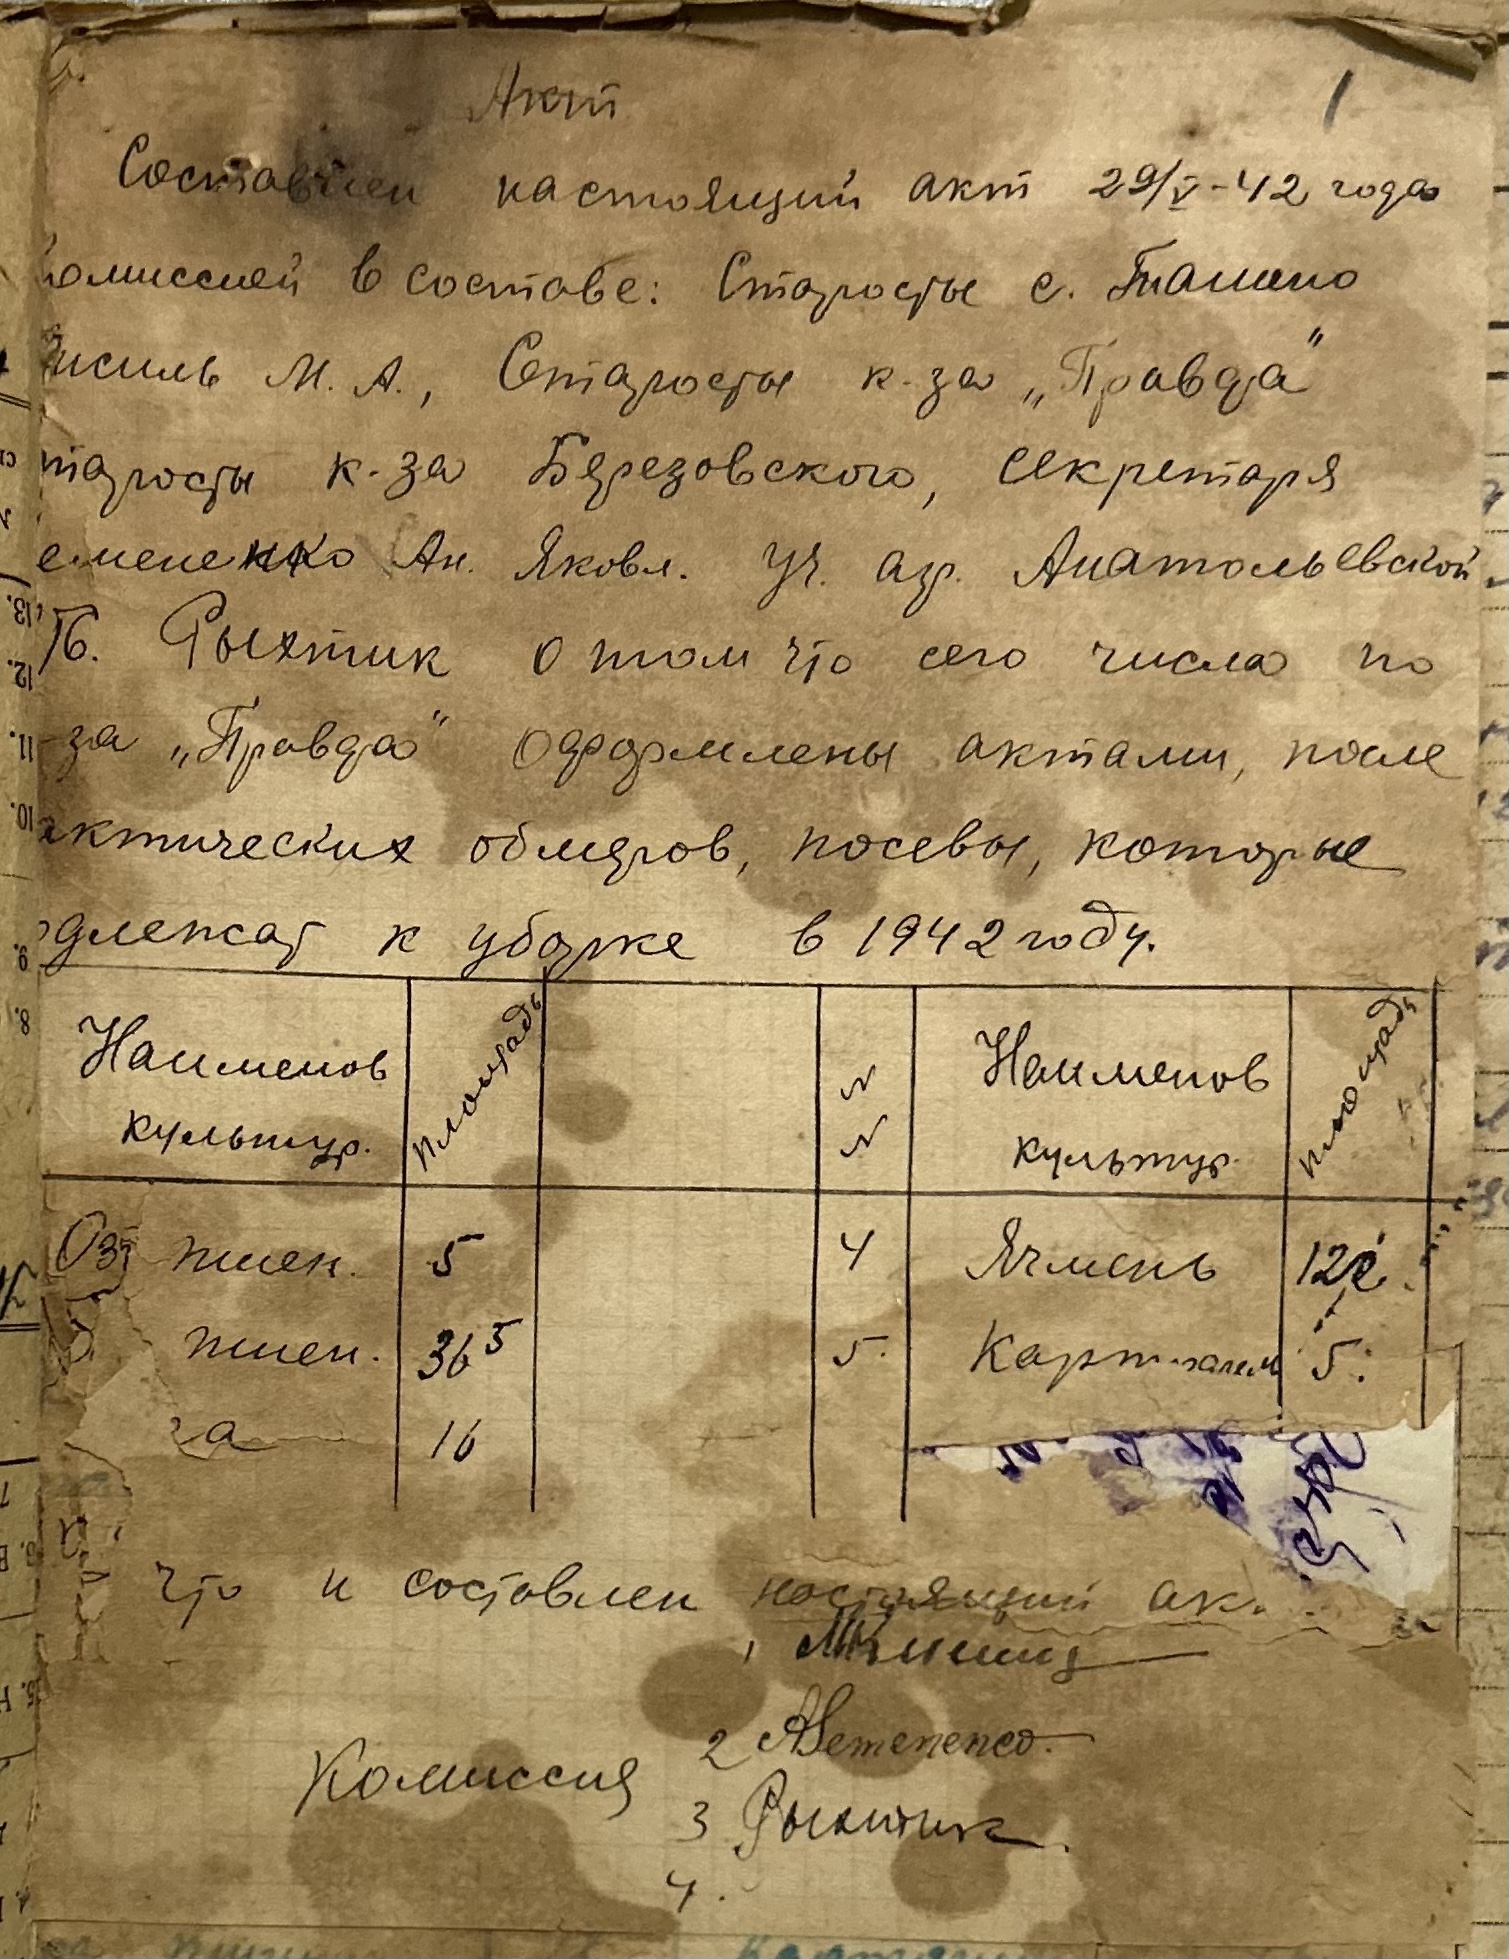 Акт
1
Составлен настоящий акт 29/V-42 года
комиссией в составе: Старосты с.
М. А., Старосты к-за „Правда"
таросты к-за Березовского, секретаря
еменко Ан. Яковл. Уч. агр. Анатольевской
Рыхтик о том что сего числа по
-за „Правда" оформлены актами, после
актических обмеров, посевы, которые
длежат к уборке в 1942 году.
Наименов культур. площадь № № Наименов культур. площадь
Оз пшен. 5 4 Ячмень
пшен. 36⁵ 5. Карт 5.
16
что и составлен настоящий ак
1
Комиссия 2
3 Рыхтик
4.